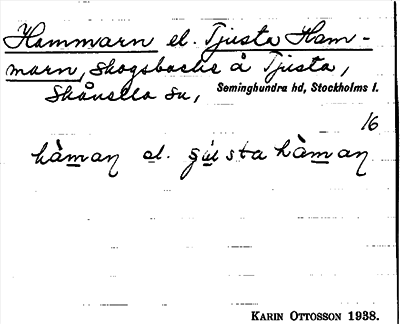 Hammarn el. Tjusta Ham-
marn, skogsbacke å Tjusta,
Skånella sn, Seminghundra hd, Stockholms l.
16
hàmaɳ el. ʂústa hàmaɳ
KARIN OTTOSSON 1938.